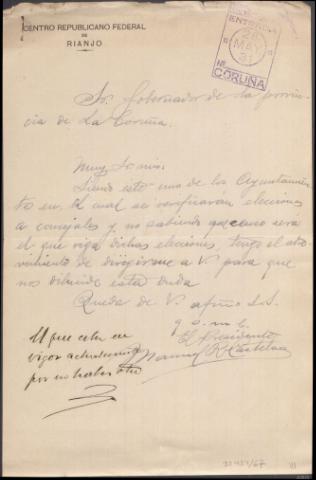 CENTRO REPUBLICANO FEDERAL
DE
RIANJO
ENTRADA
26
MAY
31
CORUÑA
Sr. Gobernador de la provin-
cia de La Coruña.
Muy Sr. mio:
Siendo este uno de los Ayuntamien-
tos en el cual se verificarán elecciones
a concejales y no sabiendo que censo será
el que rija dichas elecciones, tengo el atre-
vimiento de dirigirme a V. para que
nos dilucide esta duda
Queda de V. afmo S.S.
q. e. s. m.
El Presidente
Manuel R. Castelao
El que este en
vigor actualmente
por no haber otro